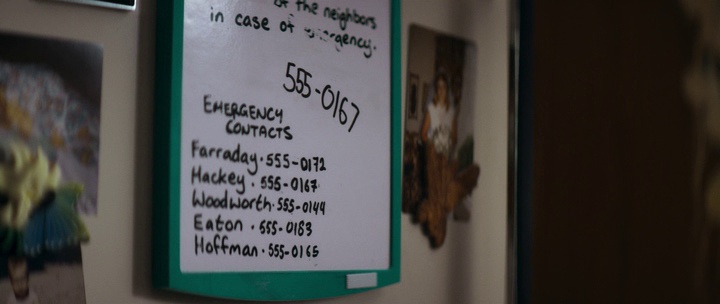 of the neighbors
in case of emergency.
555-0167
EMERGENCY
CONTACTS
Farraday · 555-0172
Hackey · 555-0167
Woodworth · 555-0144
Eaton · 555-0183
Hoffman · 555-0165